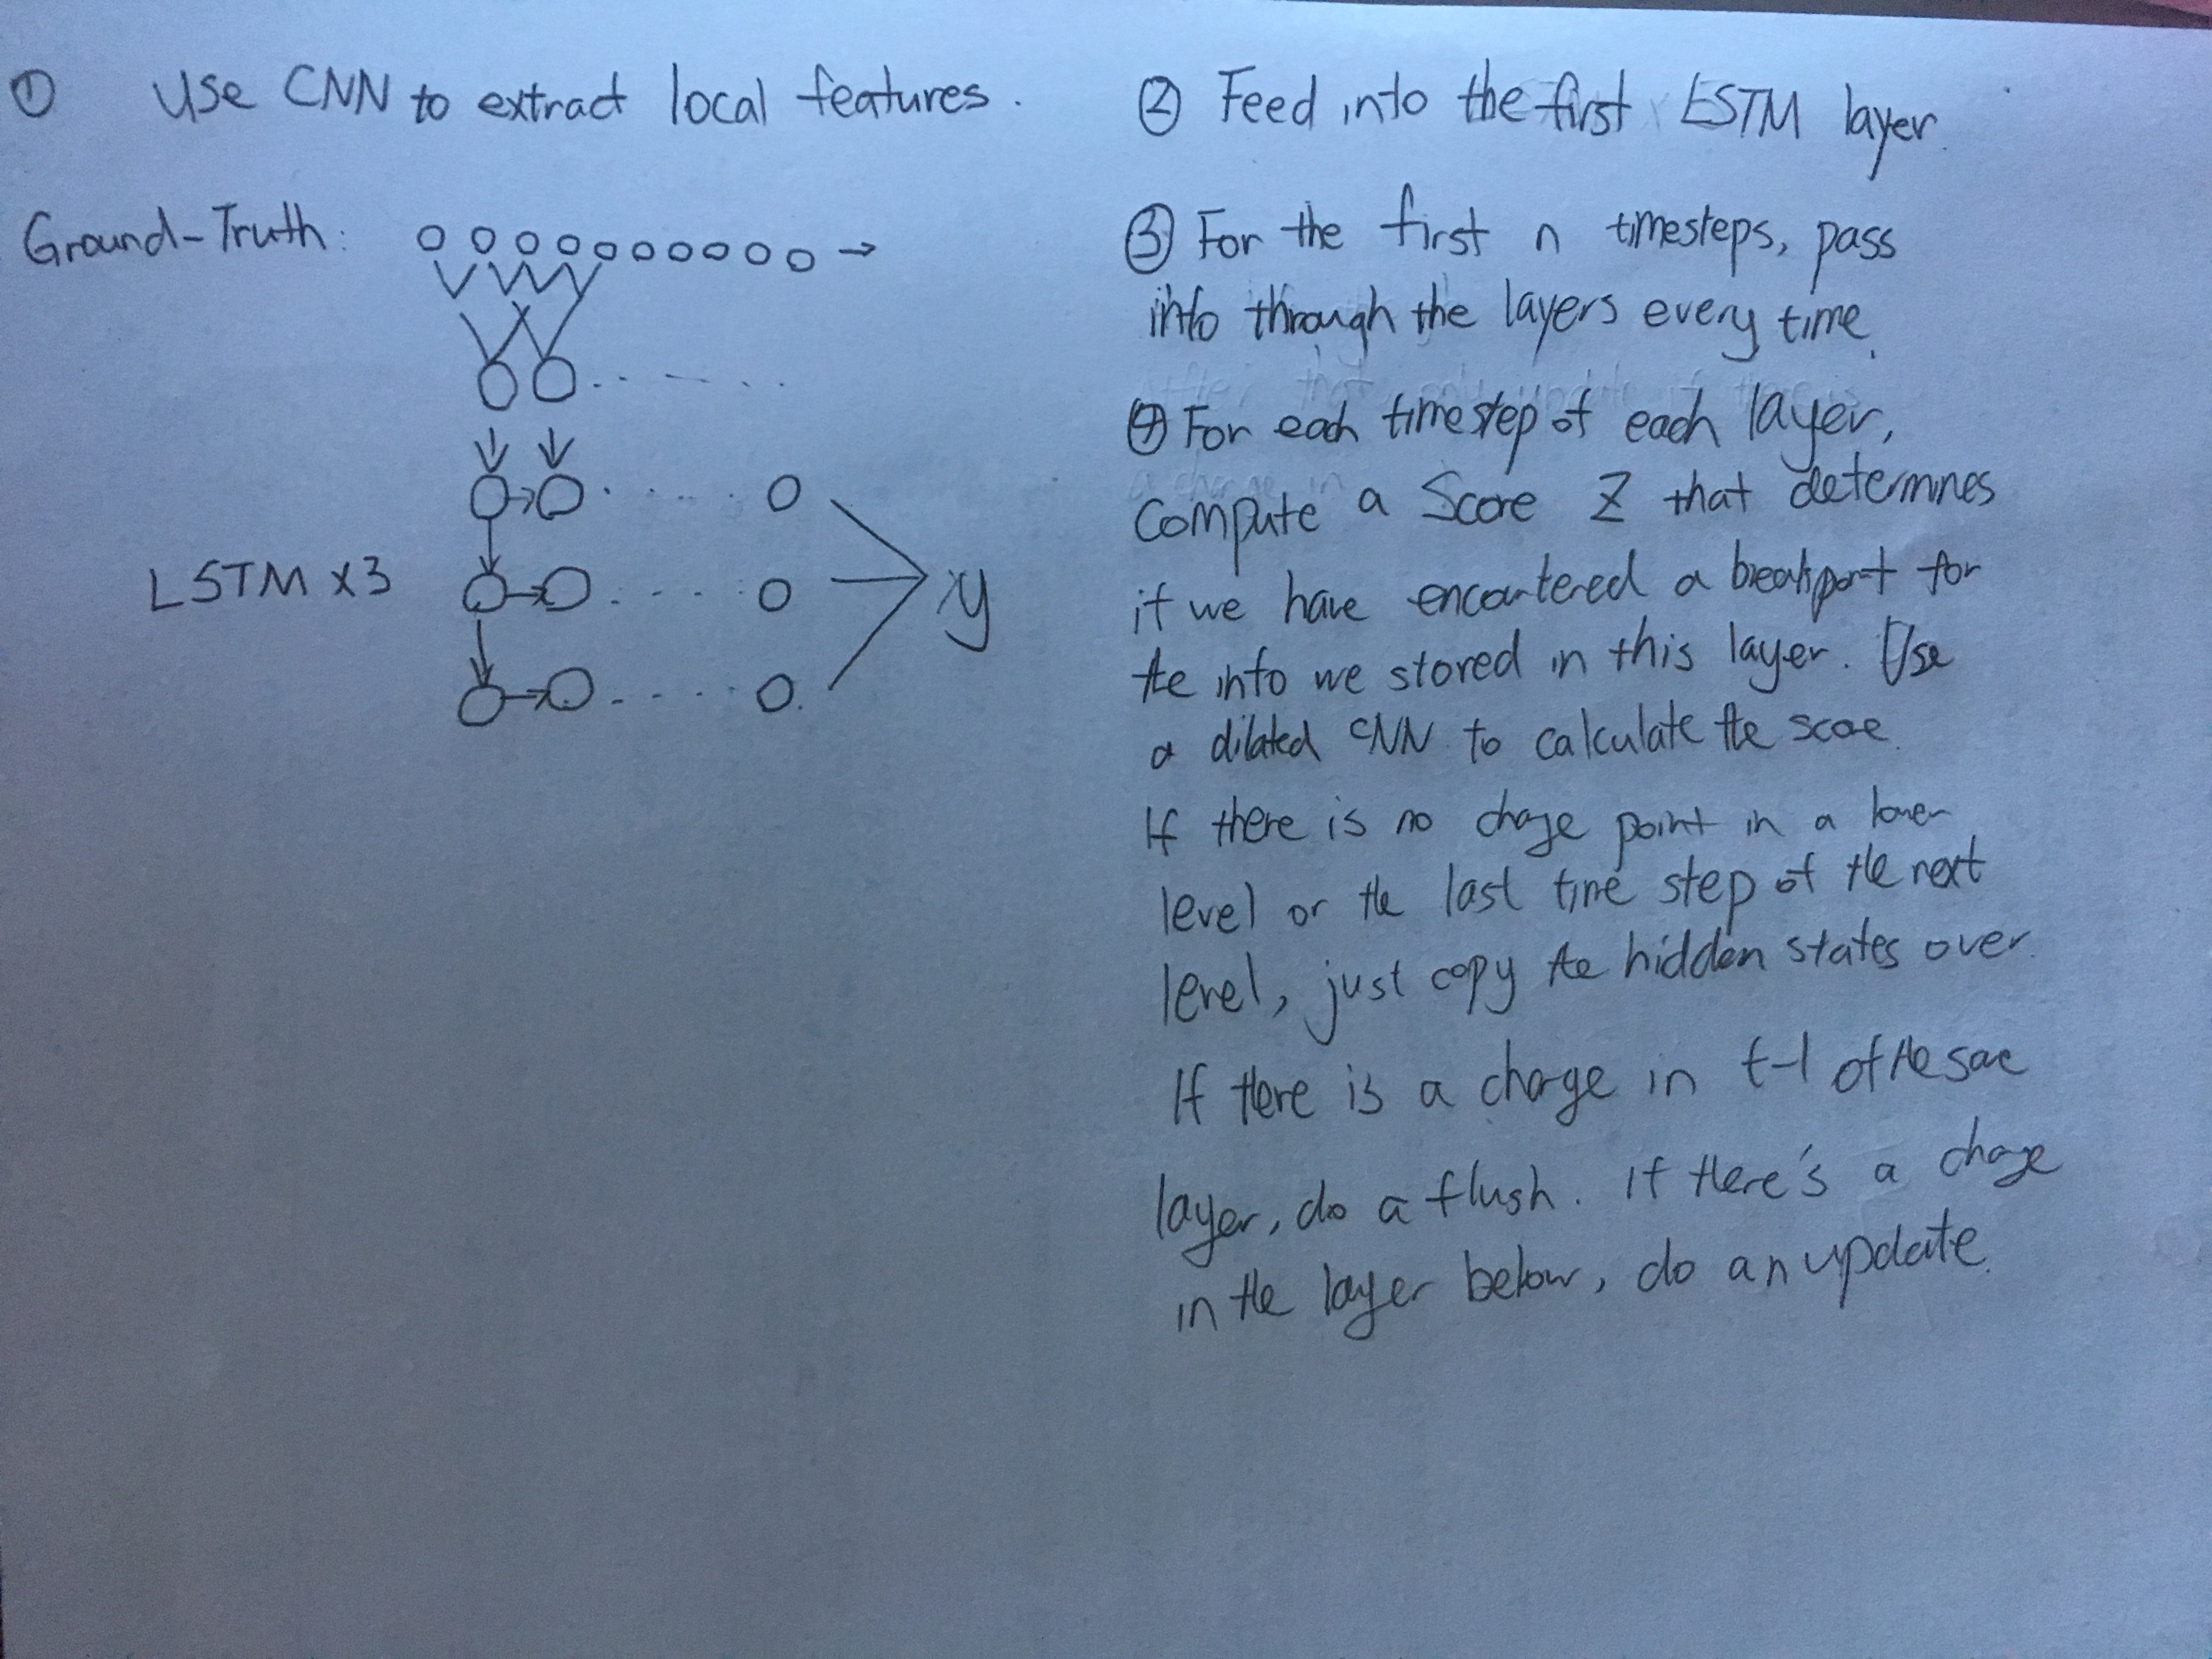 ① Use CNN to extract local features.
Ground-Truth:
LSTM x3
y
② Feed into the first LSTM layer.
③ For the first n timesteps, pass
info through the layers every time.
④ For each timestep of each layer,
compute a score Z that determines
if we have encountered a breakpoint for
the info we stored in this layer. Use
a dilated CNN to calculate the score.
If there is no change point in a lower
level or the last time step of the next
level, just copy the hidden states over.
If there is a change in t-1 of the same
layer, do a flush. If there's a change
in the layer below, do an update.